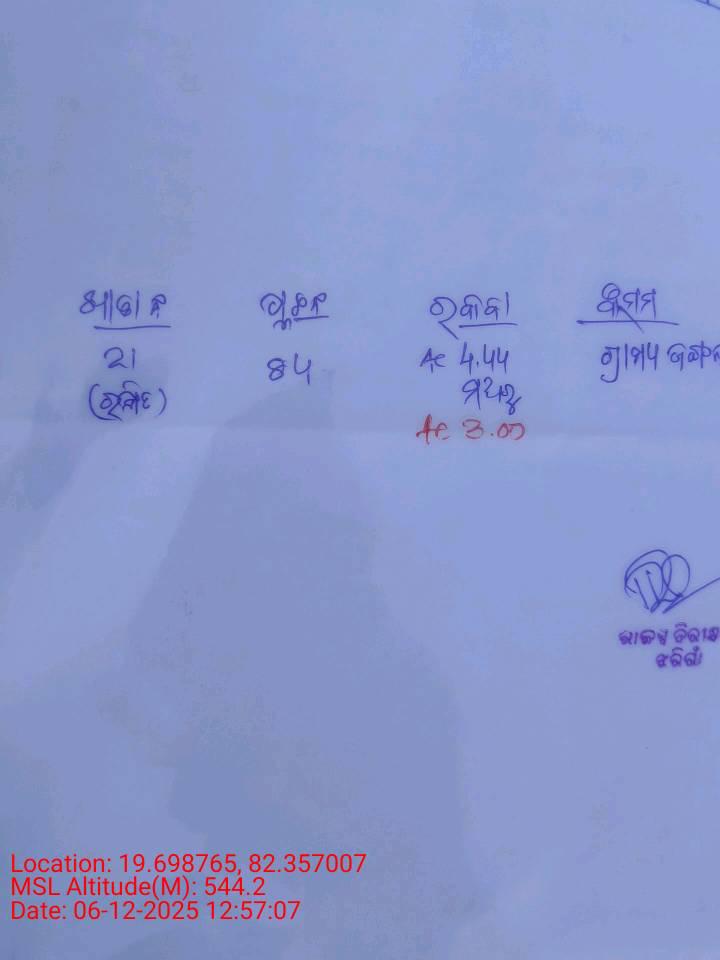 ଖାତା ନଂ ପ୍ଲଟ ନଂ ରକବା କିସମ
21 84 Ac 4.44 ଗ୍ରାମ୍ୟ ଜଙ୍ଗଲ
(ରକ୍ଷିତ) ମଧ୍ୟରୁ
Ac 3.00
ରାଜସ୍ୱ ନିରୀକ୍ଷ
ଝରିଗାଁ
Location: 19.698765, 82.357007
MSL Altitude(M): 544.2
Date: 06-12-2025 12:57:07